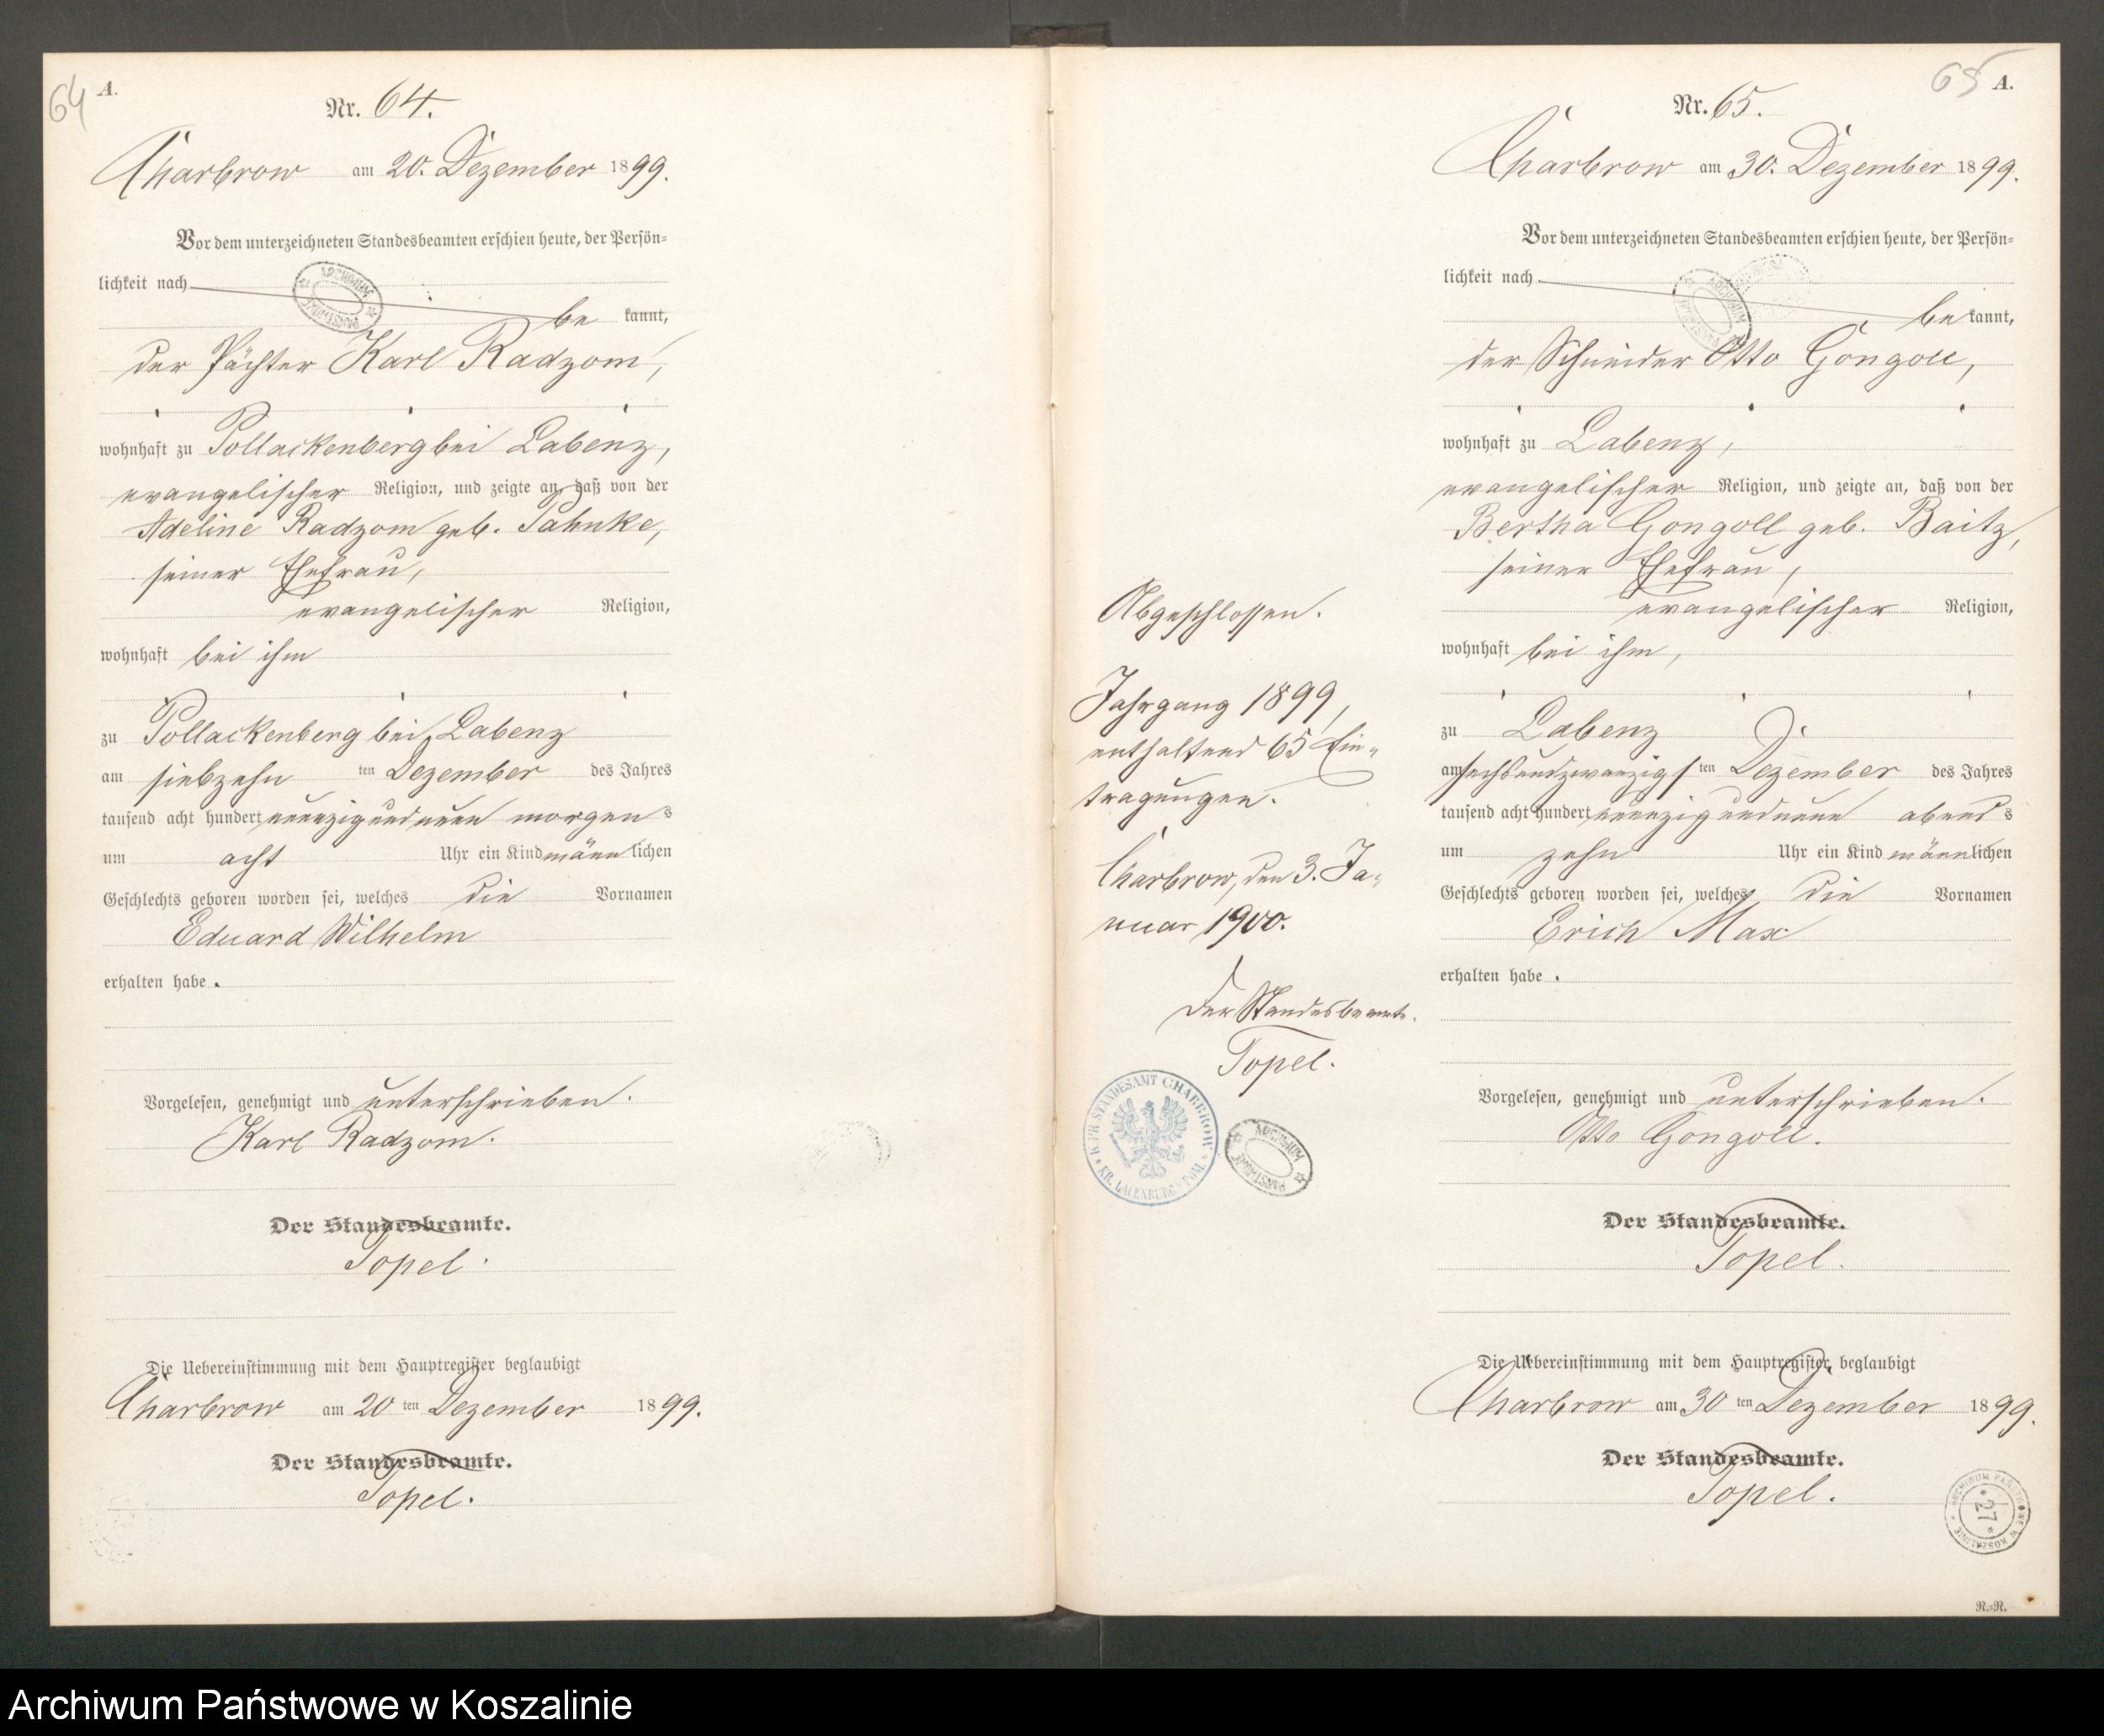 64
A.
Nr. 64.
Charbrow am 20. Dezember 1899.
Vor dem unterzeichneten Standesbeamten erschien heute, der Persön=
lichkeit nach
be kannt,
der Pächter Karl Radzom,
wohnhaft zu Pollackenberg bei Labenz,
evangelischer Religion, und zeigte an, daß von der
Adeline Radzom geb. Pahnke,
seiner Ehefrau,
evangelischer Religion,
wohnhaft bei ihm
zu Pollackenberg bei Labenz
am siebzehn ten Dezember des Jahres
tausend acht hundert neunzig und neun morgens
um acht Uhr ein Kind männlichen
Geschlechts geboren worden sei, welches die Vornamen
Eduard Wilhelm
erhalten habe.
Vorgelesen, genehmigt und unterschrieben.
Karl Radzom.
Der Standesbeamte.
Topel.
Die Uebereinstimmung mit dem Hauptregister beglaubigt
Charbrow am 20 ten Dezember 1899.
Der Standesbeamte.
Topel.
Abgeschlossen.
Jahrgang 1899,
enthaltend 65 Ein=
tragungen.
Charbrow, den 3. Ja=
nuar 1900.
Der Standesbeamte.
Topel.
K. PR. STANDESAMT CHARBROW
KR. LAUENBURG I. POM.
ARCHIWUM
PAŃSTWOWE
65
A.
Nr. 65.
Charbrow am 30. Dezember 1899.
Vor dem unterzeichneten Standesbeamten erschien heute, der Persön=
lichkeit nach
be kannt,
der Schneider Otto Gongoll,
wohnhaft zu Labenz,
evangelischer Religion, und zeigte an, daß von der
Bertha Gongoll geb. Baitz,
seiner Ehefrau,
evangelischer Religion,
wohnhaft bei ihm,
zu Labenz
am sechsundzwanzigsten Dezember des Jahres
tausend acht hundert neunzig und neun abends
um zehn Uhr ein Kind männlichen
Geschlechts geboren worden sei, welches die Vornamen
Erich Max
erhalten habe.
Vorgelesen, genehmigt und unterschrieben.
Otto Gongoll.
Der Standesbeamte.
Topel.
Die Uebereinstimmung mit dem Hauptregister beglaubigt
Charbrow am 30 ten Dezember 1899.
Der Standesbeamte.
Topel.
ARCHIWUM PAŃSTWOWE W KOSZALINIE
* 27 *
R.=R.
Archiwum Państwowe w Koszalinie